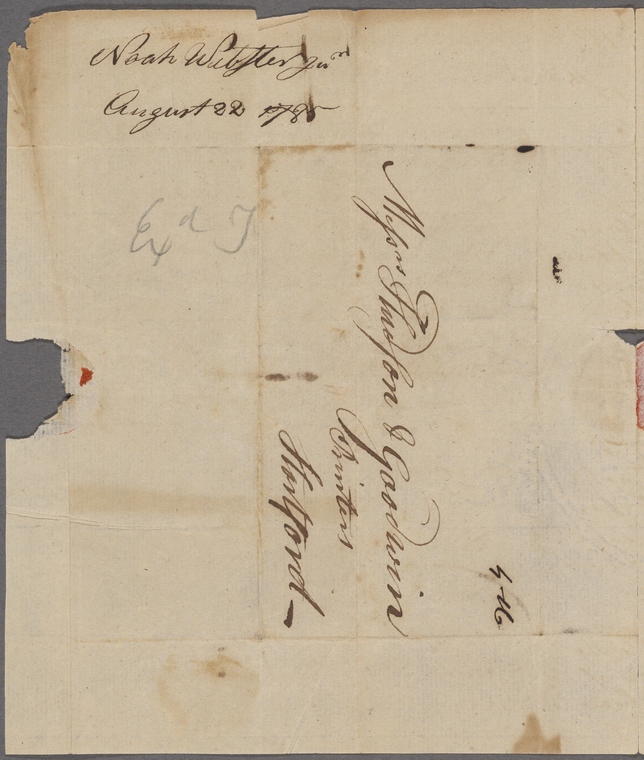 Noah Webster Junr
August 22 1785
Exd J
Messrs Hudson & Goodwin
Printers
Hartford